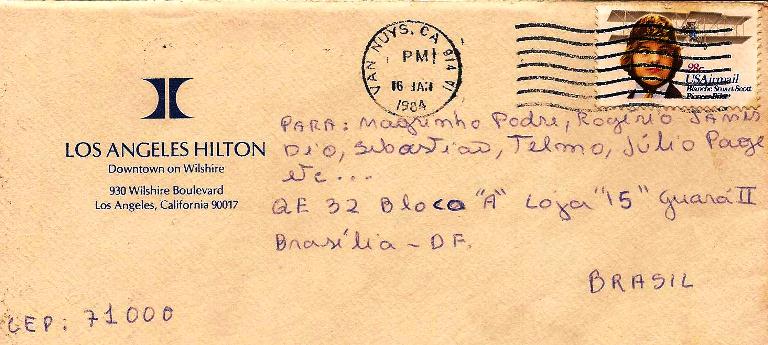 VAN NUYS, CA 914
PM
16 JAN
1984
28c
USAirmail
Blanche Stuart Scott
Pioneer Pilot
LOS ANGELES HILTON
Downtown on Wilshire
930 Wilshire Boulevard
Los Angeles, California 90017
PARA: Magrinho Podre, Rogério JAMES
DIO, Sebastião, Telmo, Júlio Page
etc...
QE 32 Bloco "A" Loja "15" Guará II
Brasília - DF.
BRASIL
CEP: 71000